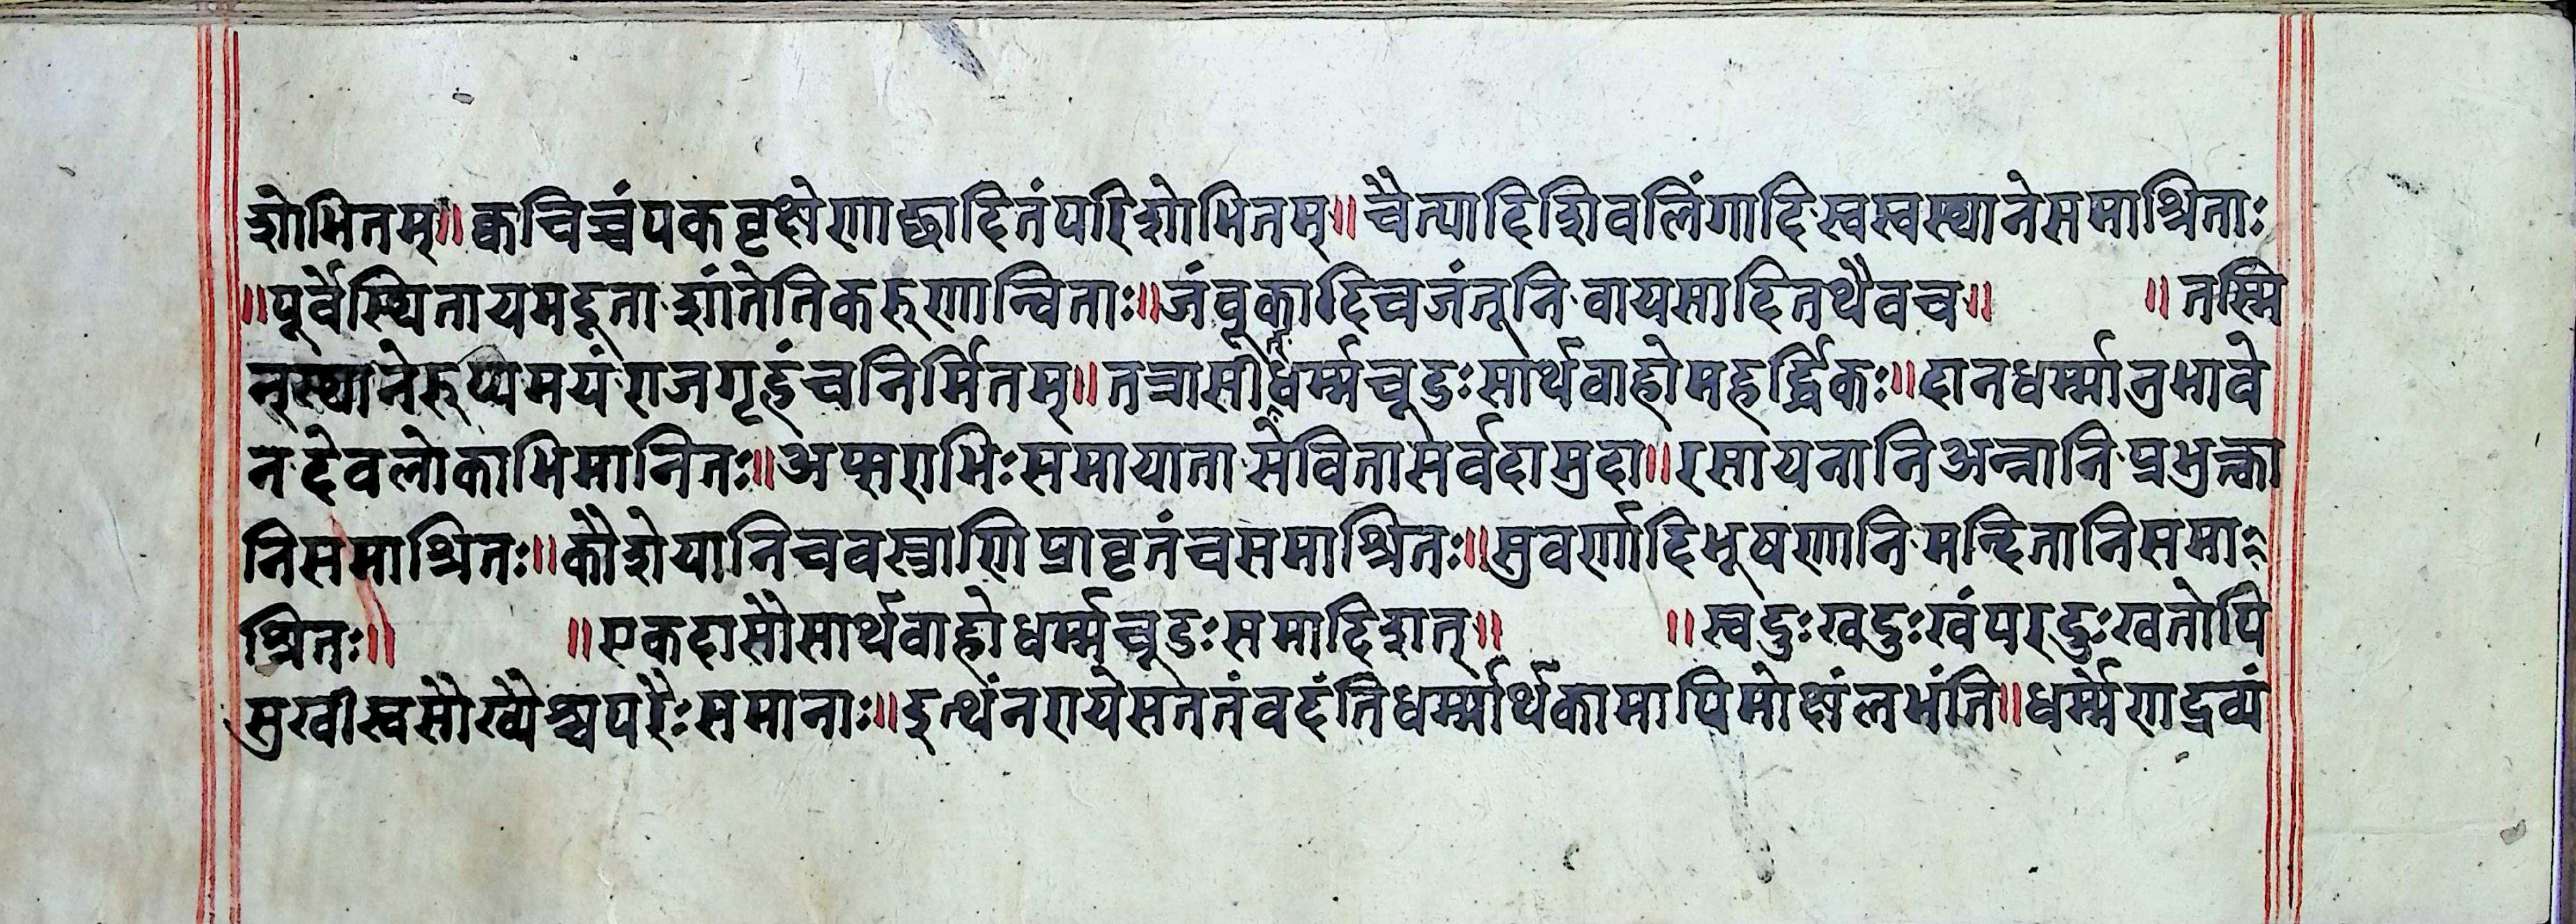 शोभितम्॥क्वचिच्चंपकवृक्षेणाछादितंपरिशोभितम्॥चैत्यादिशिवलिंगादिस्वस्वस्थानेसमाश्रिताः
॥पूर्वेस्थितायमदूताशांतेतिकरुणान्विताः॥जंवूकादिचजंतूनिवायसादितथैवच॥ ॥तस्मि
न्स्थानेरुप्यमयंराजगृहंचनिर्मितम्॥तत्रासीद्धर्म्मचूडःसार्थवाहोमहर्द्धिकः॥दानधर्म्मानुभावे
नदेवलोकाभिमानितः॥अप्सराभिःसमायातासेवितासर्वदामुदा॥रसायनानिअन्नानिप्रभुक्ता
निसमाश्रितः॥कौशेयानिचवस्त्राणिप्रावृतंचसमाश्रितः॥सुवर्णादिभूषणानिमन्दितानिसमा
श्रितः॥ ॥एकदासौसार्थवाहोधर्म्मचूडःसमादिशत्॥ ॥स्वदुःखदुःखंपरदुःखतोपि
सुखीस्वसौख्यैश्चपरैःसमानाः॥इत्थंनरायेसततंवदंतिधर्म्मार्थकामापिमोक्षंलभंति॥धर्म्मेणद्रव्यं